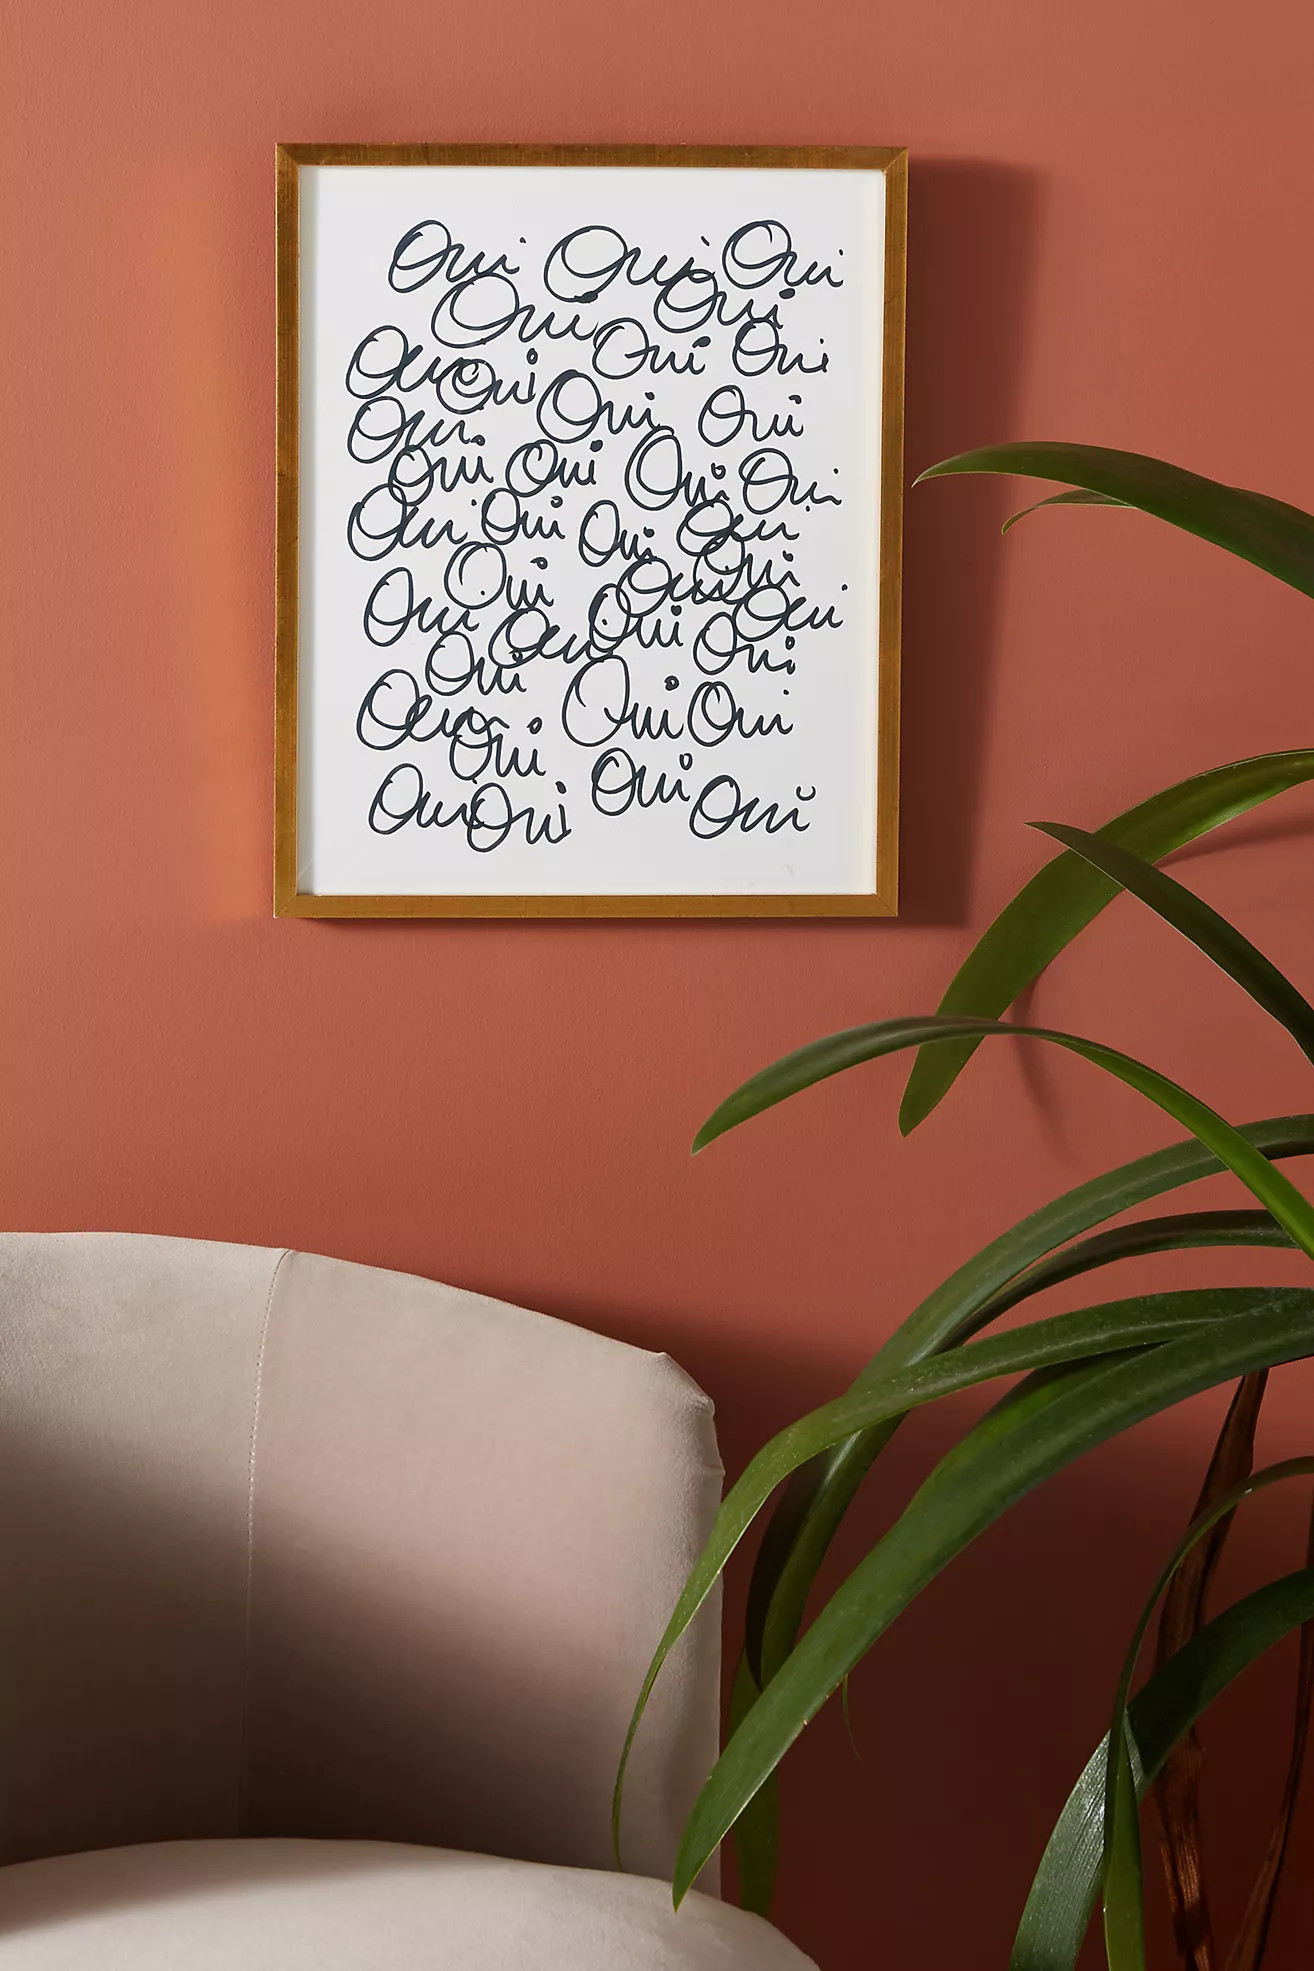 Oui Oui Oui
Oui Oui
Oui Oui Oui
Oui Oui Oui
Oui
Oui Oui Oui Oui
Oui Oui Oui Oui
Oui Oui Oui
Oui Oui Oui
Oui Oui Oui
Oui Oui Oui
Oui
Oui Oui Oui Oui